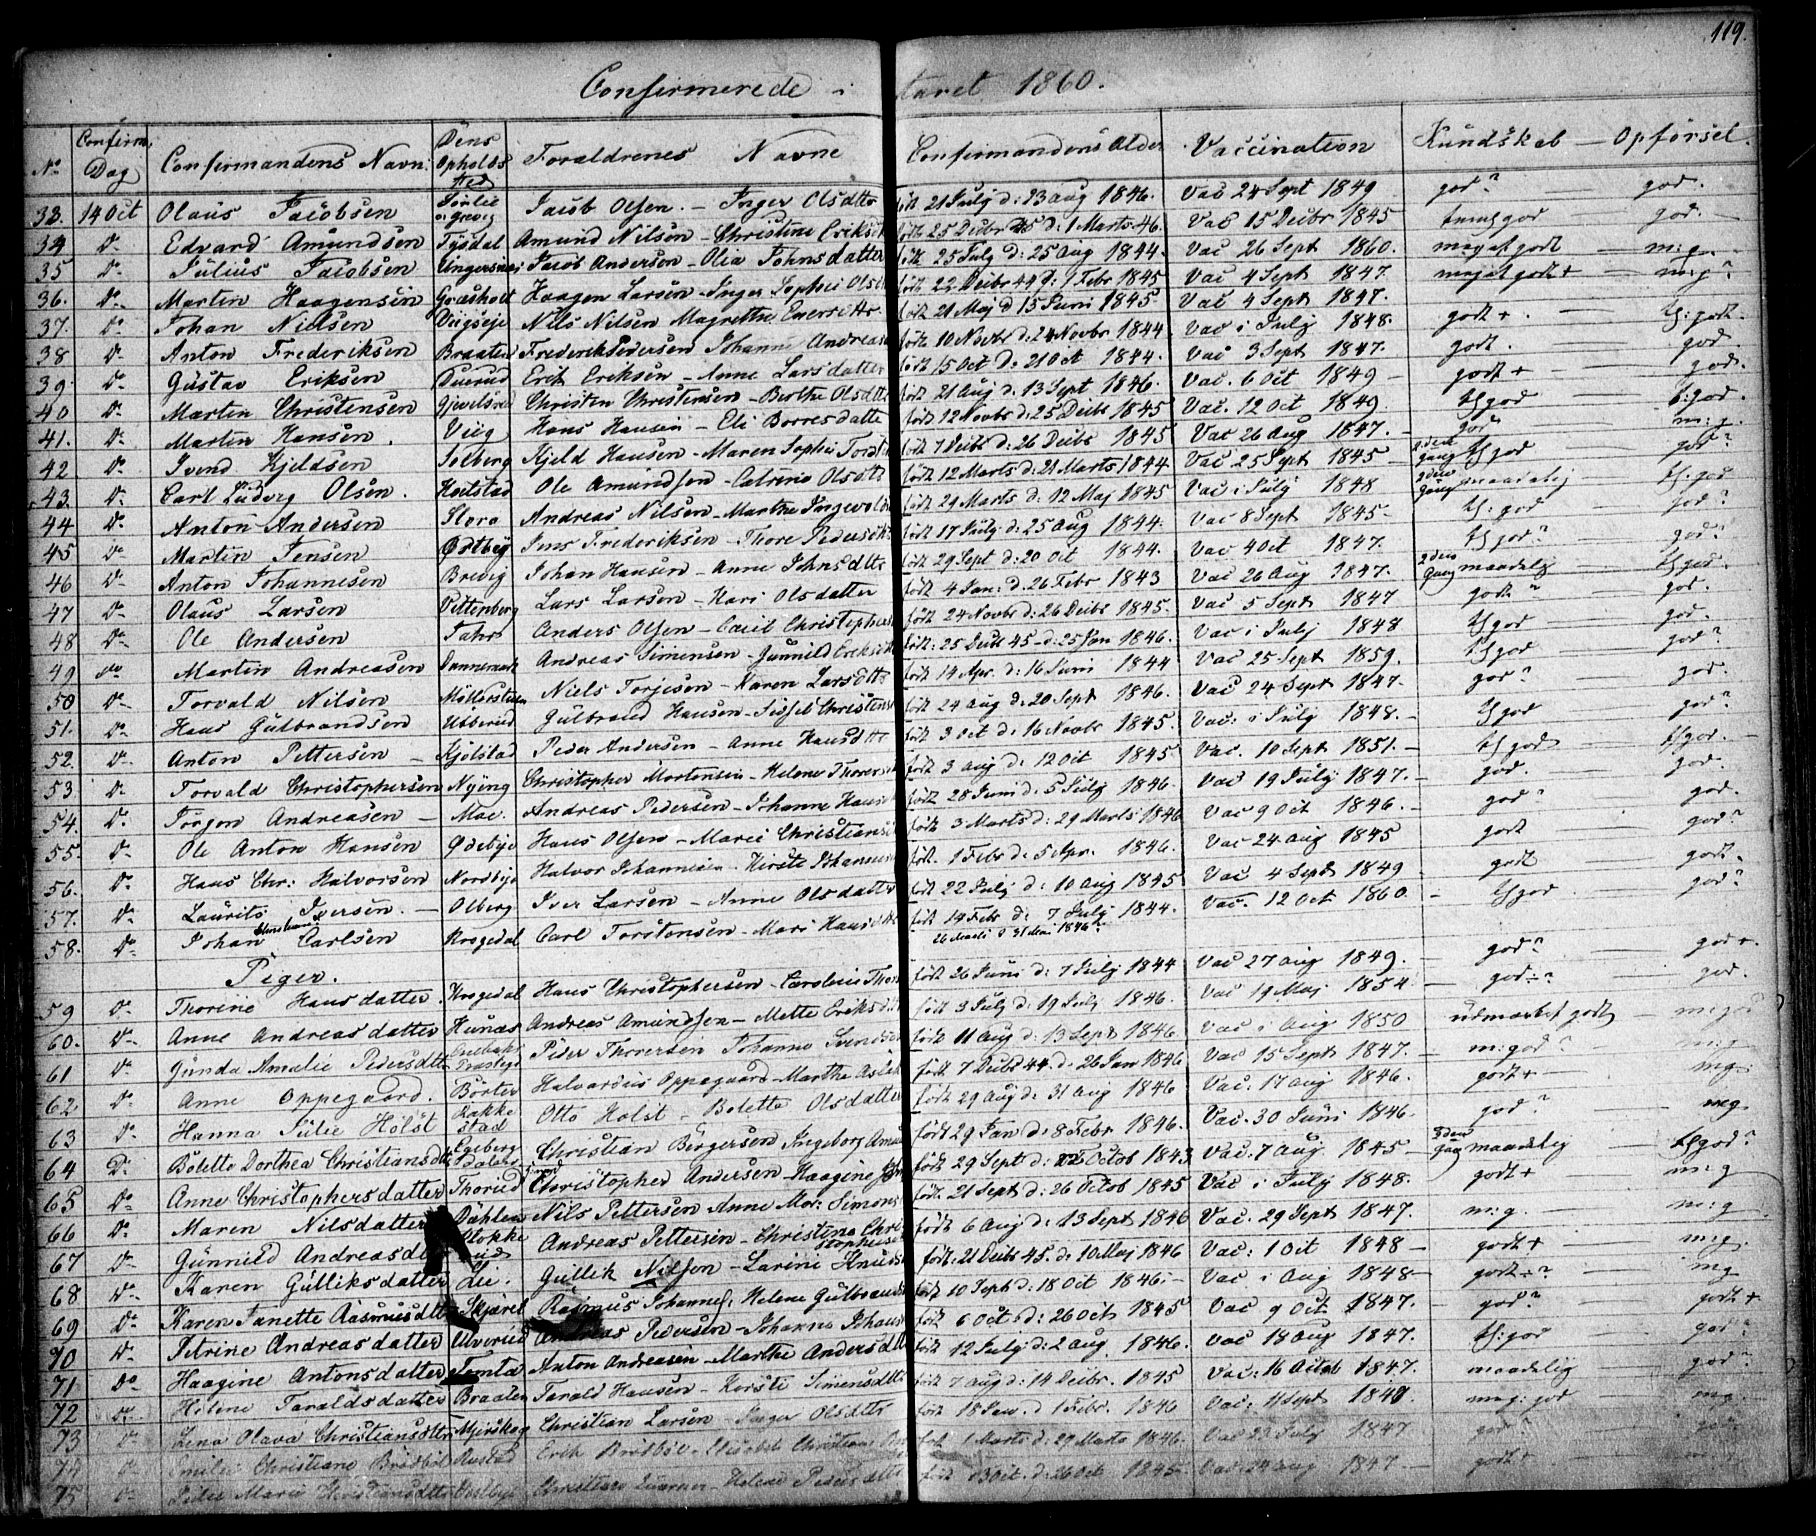 119.
Confirmerede i Aaret 1860.
No Confirm. Dag Confirmandens Navn Dens Opholds Sted Forældrenes Navne Confirmandens Alder Vaccination Kundskab — Opførsel.
33. 14 Oct Olaus Jacobsen Jacob Olsen. — Inger Olsdttr født 21 July d: 23 Aug 1846. Vac 24 Sept 1849 god? — god.
34 Do Edvard Amundsen Tysdal Amund Nilsen — Christine Eriksd født 25 Decbr 45 d: 1 Marts 46. Vac 15 Decbr 1845 god god.
35 Do Julius Jacobsen Jacob Andersen — Olea Johnsdatter født 25 July d: 25 Aug 1844. Vac 26 Sept 1860. meget godt — m:g.
36. Do Martin Haagensen Graaholt Haagen Larsen — Inger Sophie Olsd født 22 Decbr 44 d: 1 Febr 1845 Vac 4 Sept 1847. meget godt + — m:g?
37. Do Johan Nielsen Nils Nilsen Magrethe født 21 Maj d 15 Juni 1845 Vac 4 Sept 1847.
38 Do Anton Frederiksen Braaten Frederik Pedersen Johanne Andreasd født 10 Novbr d: 24 Novbr 1844 Vac i July 1848. godt + . — tf: godt.
39. Do Gustav Eriksen Erik Eriksen — Anne Larsdatter født 15 Oct d: 21 Oct 1844. Vac 3 Sept 1847. godt. — god.
40 Do Martin Christensen Christen Christensen — Berthe Olsdttr født 21 Aug d: 13 Sept 1846. Vac. 6 Oct 1849 — godt + — god.
41. Do Martin Hansen. Viig Hans Hansen — Eli Borresdatte født 12 Novbr d: 25 Decbr 1845 Vac. 12 Oct 1849 tf god — t: god.
42 Do Ivend Kjeldsen Solberg Kjeld Hansen — Maren Sophie født 7 Decbr d: 26 Decbr 1845 Vac 26 Aug 1847. — god — m:g.
43. Do Carl Ludvig Olsen. Ole Amundsen — Catrine Olsdttr født 12 Marts d: 21 Marts 1844 Vac 25 Sept 1845 — 2den Gang tf god god?
44 Do Anton Andersen Slora Andreas Nilsen — Marthe Ingevold født 29 Marts d: 12 Maj 1845 Vac i July 1848 2den Gang maadelig — tf: god
45 Do Martin Jensen Østby Jens Frederiksen — Thore Pedersd født 17 July d: 25 Aug 1844. Vac 8 Sept 1845 — tf: god — god?
46 Do Anton Johannesen Brevig Johan Hansen — Anne Johnsdttr født 29 Sept d: 20 Oct 1844. Vac 4 Oct 1847. tf god? — god?
47 Do Olaus Larsen Pettersberg Lars Larsen — Kari Olsdatter født 4 Jan: d: 26 Febr 1843 Vac 26 Aug 1847. 2den Gang maadelig — tf god.
48 Do Ole Andersen Anders Olsen — født 24 Novbr d: 26 Decbr 1845. Vac 5 Sept 1847 godt? — god.
49 Do Martin Andreasen Dannemark Andreas Simensen — Gunnild Eriksd født: 25 Decbr 45 — d: 25 Jan 1846. Vac i July 1848 tf god — god.
50 Do Torvald Nilsen Niels Torjesen — Karen Larsdttr født 14 Apr. d: 16 Juni 1844 Vac 25 Sept 1859. tf god — god?
51. Do Hans Gulbrandsen Gulbrand Hansen — Sidsel Christens født 24 Aug d: 20 Sept 1846. Vac 24 Sept 1847. god? — god.
52. Do Anton Pettersen — Kjølstad Peder Andersen — Anne Hansdttr født 3 Oct d: 16 Novbr 1845. Vac: i July 1848. — tf god — god?
53 Do Torvald Christophersen Nyeng Christopher Mortensen — Helene født 3 Aug d: 12 Oct 1845 Vac. 10 Sept 1851. — tf god — tf god. —
54. Do Jørgen Andreasen — Moe. Andreas Pedersen — Johanne Hans født 28 Juni d: 5 July 1846. Vac 19 July 1847. — god. — god.
55. Do Ole Anton Hansen Ødebye Hans Olsen — Maree Christians født 3 Marts d: 29 Marts 1846 Vac 9 Oct 1846. — god? — god.
56. Do Hans Chr: Halvorsen Nordbye Halvor Johannesen — Kirsti Johannes født. 1 Febr d: 5 Apr. 1846. Vac 24 Aug 1845 godt — god?
57. Do Laurits Iversen. — Olberg Iver Larsen — Anne Olsdatter født 22 July d: 10 Aug 1845 Vac 4 Sept 1849 godt — godt.
58. Do Johan Christian Carlsen Krogedal Carl Torstensen — Mari Hansdttr født 14 Febr d: 7 July 1844. Vac. 12 Oct 1860. — tf god — god?
Piger.
59 Do Thorine Hansdatter. Krogedal Hans Christophersen — født 26 Juni d: 7 July 1844 Vac 27 Aug 1849. god? — god +.
60. Do Anne Andreasdatter Hunæs Andreas Amundsen — Mette Eriksd født 3 July d: 19 July 1846. Vac 19 Maj 1854 — god ÷? — god.
61 Do Gunda Amalie Pedersdttr Peder Thorersen Johanne Svendsd født 11 Aug d: 13 Sept 1846. Vac i Aug 1850 udmærket godt — m: god
62. Do Anne Oppegaard. Børter Halvardus Oppegaard — Marthe født 7 Decbr 44. d: 26 Jan 1846 Vac 15 Sept 1847. — m: god? — m:g
63 Do Hanna Julie Holst Rakkestad Otto Holst — Bolette Olsdatter født 29 Aug d: 31 Aug 1846 Vac. 17 Aug 1846. godt + — mg.
64 Do Bolette Dorthea Christiansdttr Egeberg Christian Børgersen Ingeborg født 29 Jan d: 8 Febr 1846. Vac. 30 Juni 1846. god? — mg
65 Do Anne Christophersdatter Thorud Christopher Andersen — Haagine født 29 Sept d: 22 Octob 1843 Vac. 7 Aug 1845 — 3den Gang maadelig tf god?
66 Do Maren Nilsdatter Dahlen Nils Pettersen Anne Mar: Simons født 21 Sept d: 26 Octob 1845 Vac i July 1848. godt + — m:g
67 Do Gunnild Andreasdttr Andreas Pettersen — Christine Christophers født 6 Aug d: 13 Sept 1846 Vac. 29 Sept 1847. m:g. — m:g
68 Do Karen Gulliksdatter Lie. Gullik Nilsen — Larine Knuds født: 21 Decbr 45. d: 10 Maj 1846 Vac: 1 Oct 1848 — godt + — mg.
69 Do Karen Janette Rasmusdttr Skjærel Rasmus Johannes: Helene Gulbrands født 10 Sept d: 18 Oct 1846. — Vac i Aug 1848 — godt ÷? — mg
70 Do Petrine Andreasdatter Ulverud Andreas Pedersen — Johanne Johans født 6 Oct d: 26 Oct 1845 Vac 9 Oct 1847. god? — godt +
71 Do Haagine Antonsdatter Tomta Anton Andreasen — Marthe Andersdttr født 12 July d: 2 Aug 1846. Vac 18 Aug 1847. tf: god — god?
72 Do Helene Taraldsdatter Braaten Tarald Hansen — Kirsti Simensdttr født 7 Aug d: 14 Decbr. 1845 Vac: 16 Octob 1847. maadelig — god?
73 Do Lena Olava Christiansdttr Mjørskog Christian Larsen — Inger Olsdttr født 18 Jan. d 1 Febr. 1846 Vac: 11 Sept 1847 meg: god mg.
74 Do Emilie Christiane Brødbøl Erik Brødbøl — Elisabet Christians født 1 Marts d: 29 Marts 1846. Vac 22 July 1847 god? god?
75 Do Julie Marie Christiansdttr Vestbye Christian — Helene Pedersdttr født 13 Oct. d: 26 Oct 1845 Vac 24 Aug 1847 — godt +